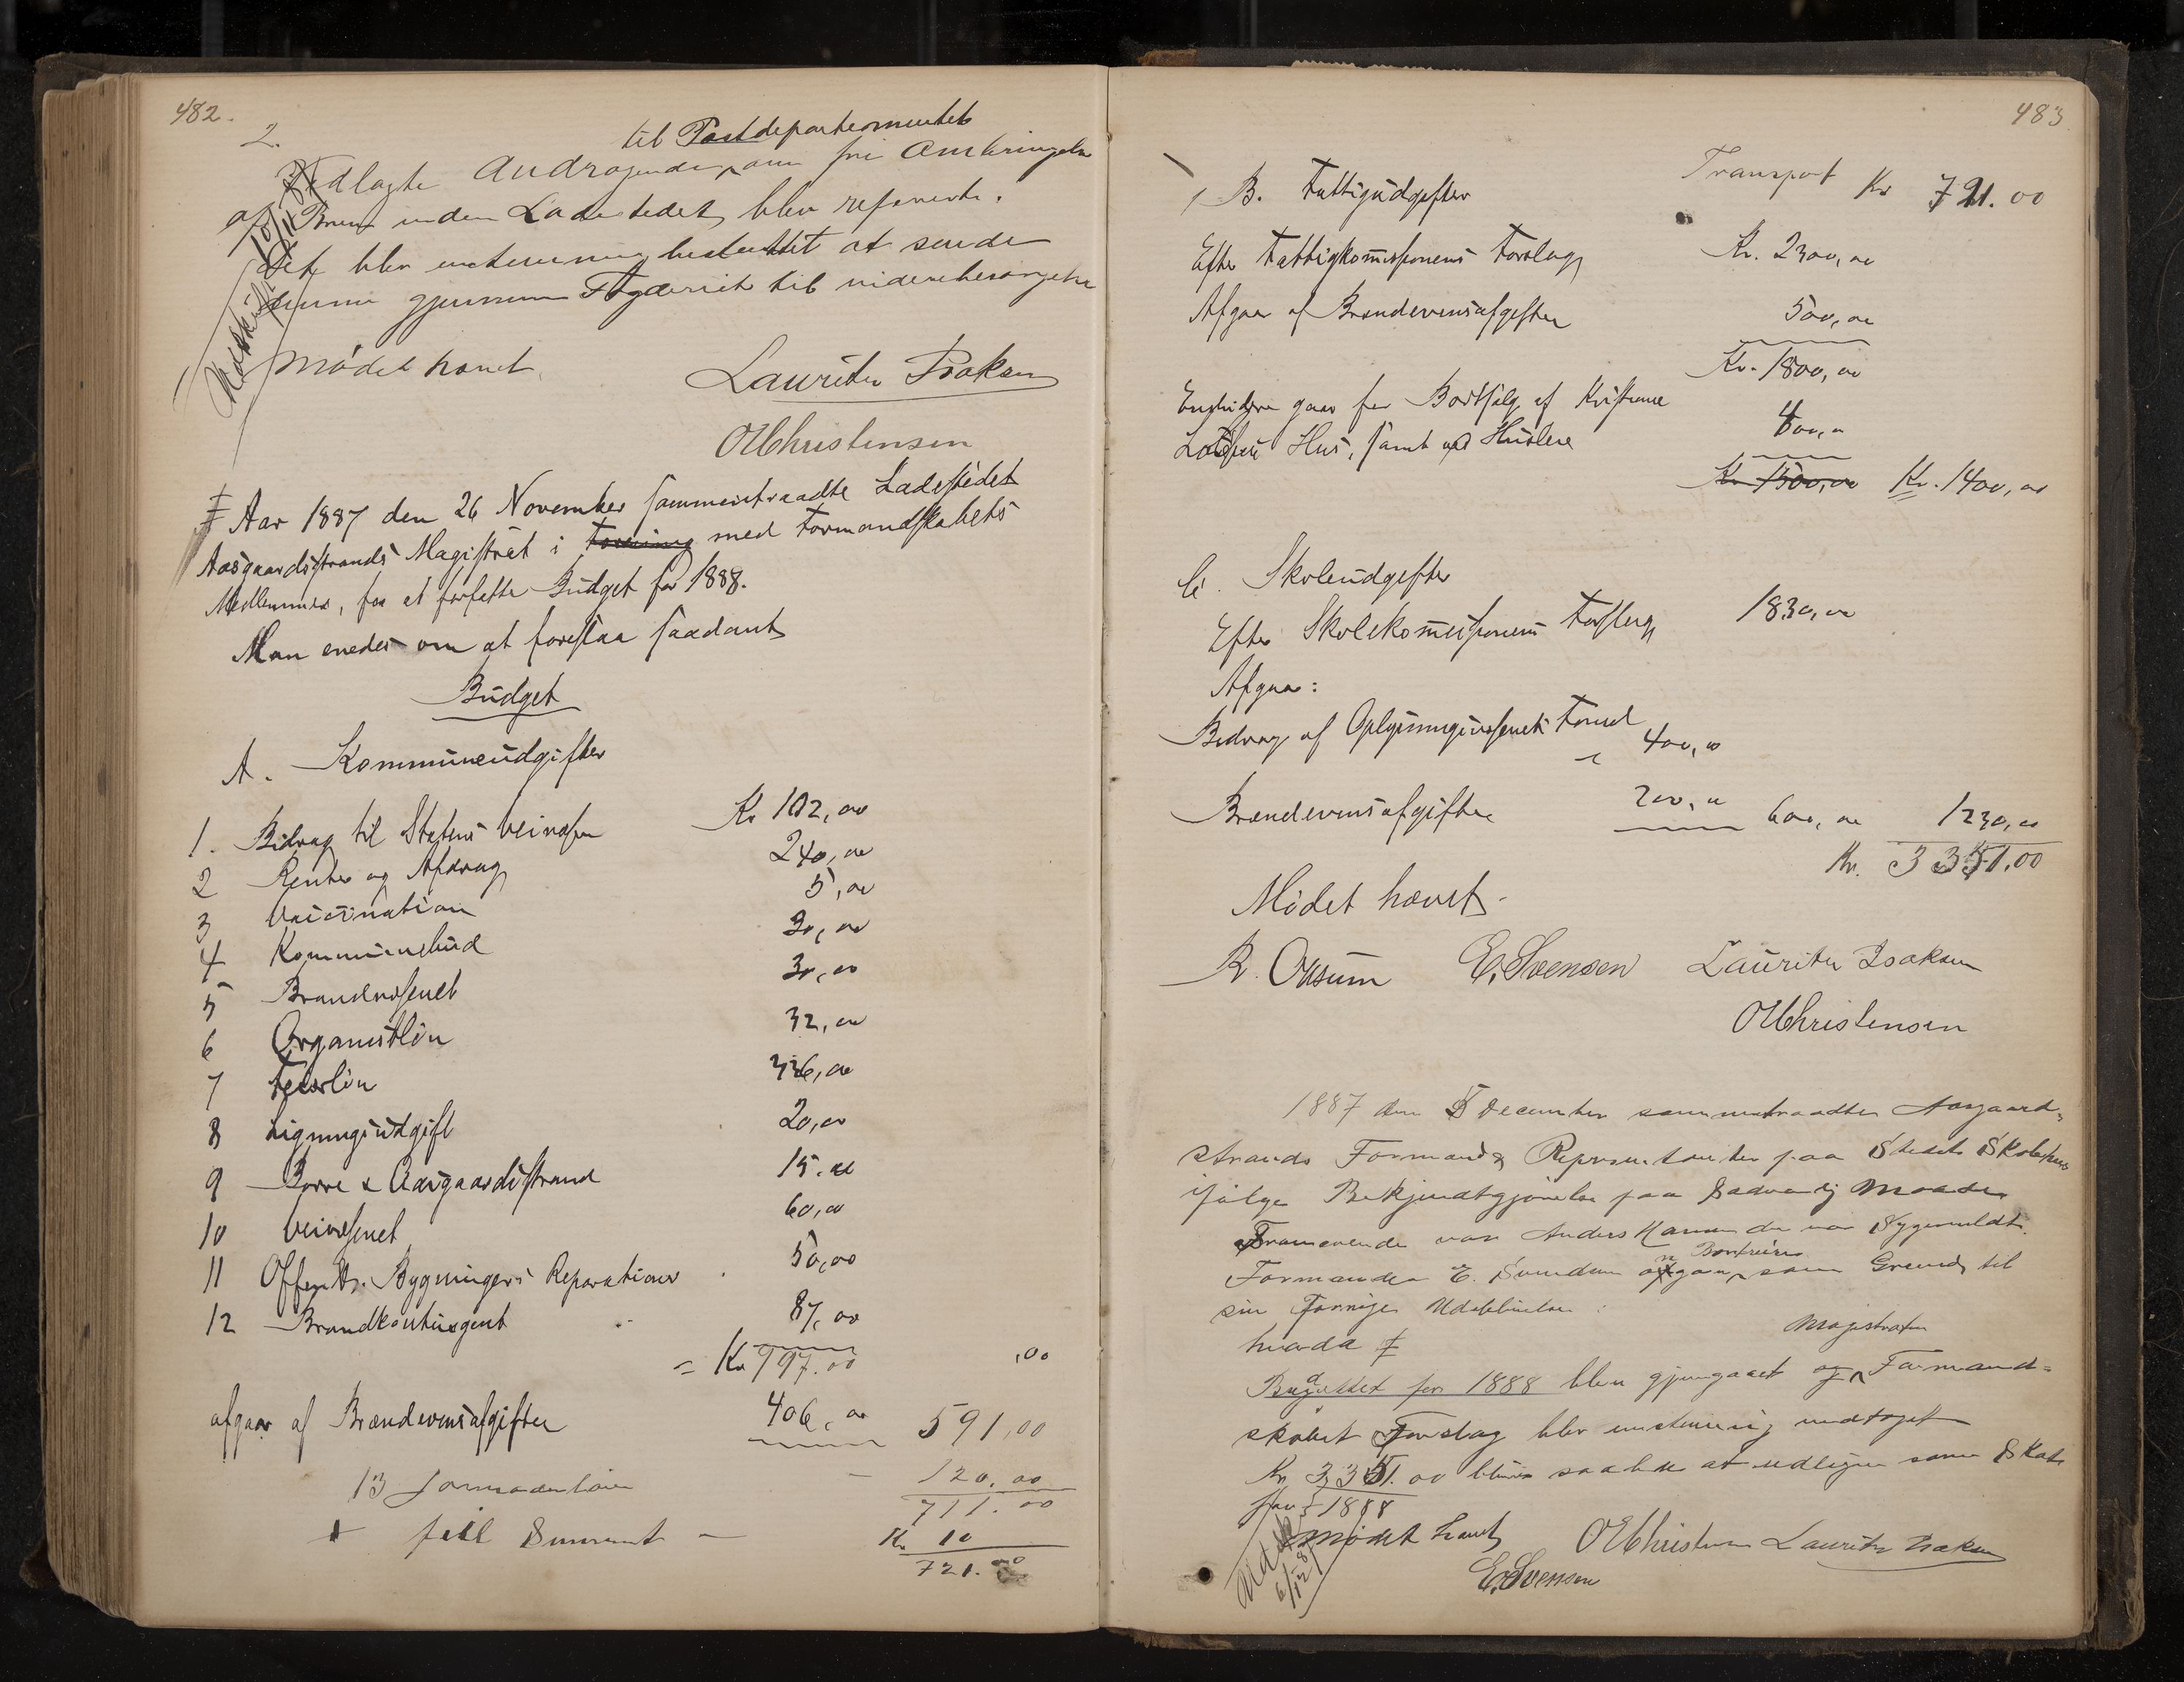 482.
2.
til Postdepartementet
Vedlagte Andragende om fri Ombringelse
af Breve inden Ladestedet blev refereret.
Det blev enstemmig besluttet at sende
denne gjennem Fogderiet til videre besørgelse
Mødet hævet.
Lauritz Isaksen
OMChristensen
Aar 1887 den 26 November sammentraadte Ladestedet
Aasgaardsstrands Magistrat i Forening med Formandskabets
Medlemmer, for at forfatte Budget for 1888.
Man enedes om at foreslaa saadant
Budget
A. Kommuneudgifter
1. Bidrag til Statens Veivæsen Kr 102,00
2 Renter og Afdrag 240,00
3 Vaccination 5,00
4 Kommunebud 20,00
5 Brandvæsenet 30,00
6 Organistløn 32,00
7 336,00
8 Ligningsudgift 20,00
9 Borre & Aasgaardsstrand 15.00
10 Veivæsenet 60,00
11 Offentl. Bygningers Reparationer 50,00
12 Brandkontingent 87,00
= Kr 997.00 ,00
afgaar af Brændevinsafgiften 406,00 591,00
13 Jormoderløn — 120.00
711.00
+ — Kr 10
721.00
483
Transport Kr 721.00
B. Fattigudgifter
Efter Fattigkommissionens Forslag Kr. 2300,00
Afgaar af Brændevinsafgiften 500,00
Kr. 1800,00
Endvidere gaar for Bortsalg af Kristiane
Hus, samt Husleie 400,00
Kr 1500,00 Kr. 1400,00
C. Skoleudgifter
Efter Skolekommissionens Forslag 1830,00
Afgaar:
Bidrag af Oplysningsvæsenets Fond
400,00
Brændevinsafgiften 200,00 600,00 1230,00
Kr. 3351.00
Mødet hævet.
R. Oksum E. Svensen Lauritz Isaksen
OMChristensen
1887 den 5 December sammentraadte Aasgaard-
strands Formænd & Repræsentanter paa Stedets Skolehus
ifølge Bekjendtgjørelse paa Sædvanlig Maade
Fraværende var Anders Hansen der var Sygemeldt.
Formanden E. Svendsen som Grund til
sin Forrige Udeblivelse:
Magistraten
Budgettet for 1888 blev gjengaaet og Formand-
skabet Forslag blev enstemmig vedtaget
Kr 3351.00 bliver saaledes at udligne som Skat
for 1888
Mødet hævet OMChristensen Lauritz Isaksen
E. Svensen
6/12 87